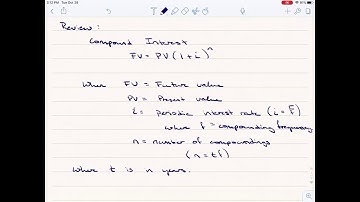 5:12 PM Tue Oct 29
Review:
Compound Interest
FV = PV(1+i)^n
Where FV = Future value
PV = Present value
i = periodic interest rate (i = r/f)
where f = compounding frequency
n = number of compoundings
(n = tf)
Where t is n years.